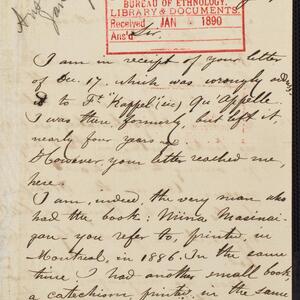 BUREAU OF ETHNOLOGY,
LIBRARY & DOCUMENTS.
Received JAN 1890
Ans'd
Sir,
I am in receipt of your letter
of Dec. 17. which was wrongly
to Ft "Kappel" (sic) Qu'Appelle.
I was there formerly, but left it,
nearly four years
However, your letter reached me,
here.
I am, indeed, the very man who
had the book: Niina Masinai-
gan - you refer to, printed, in
Montreal, in 1886. In the same
time I had another small book
a catechism, printed in the same